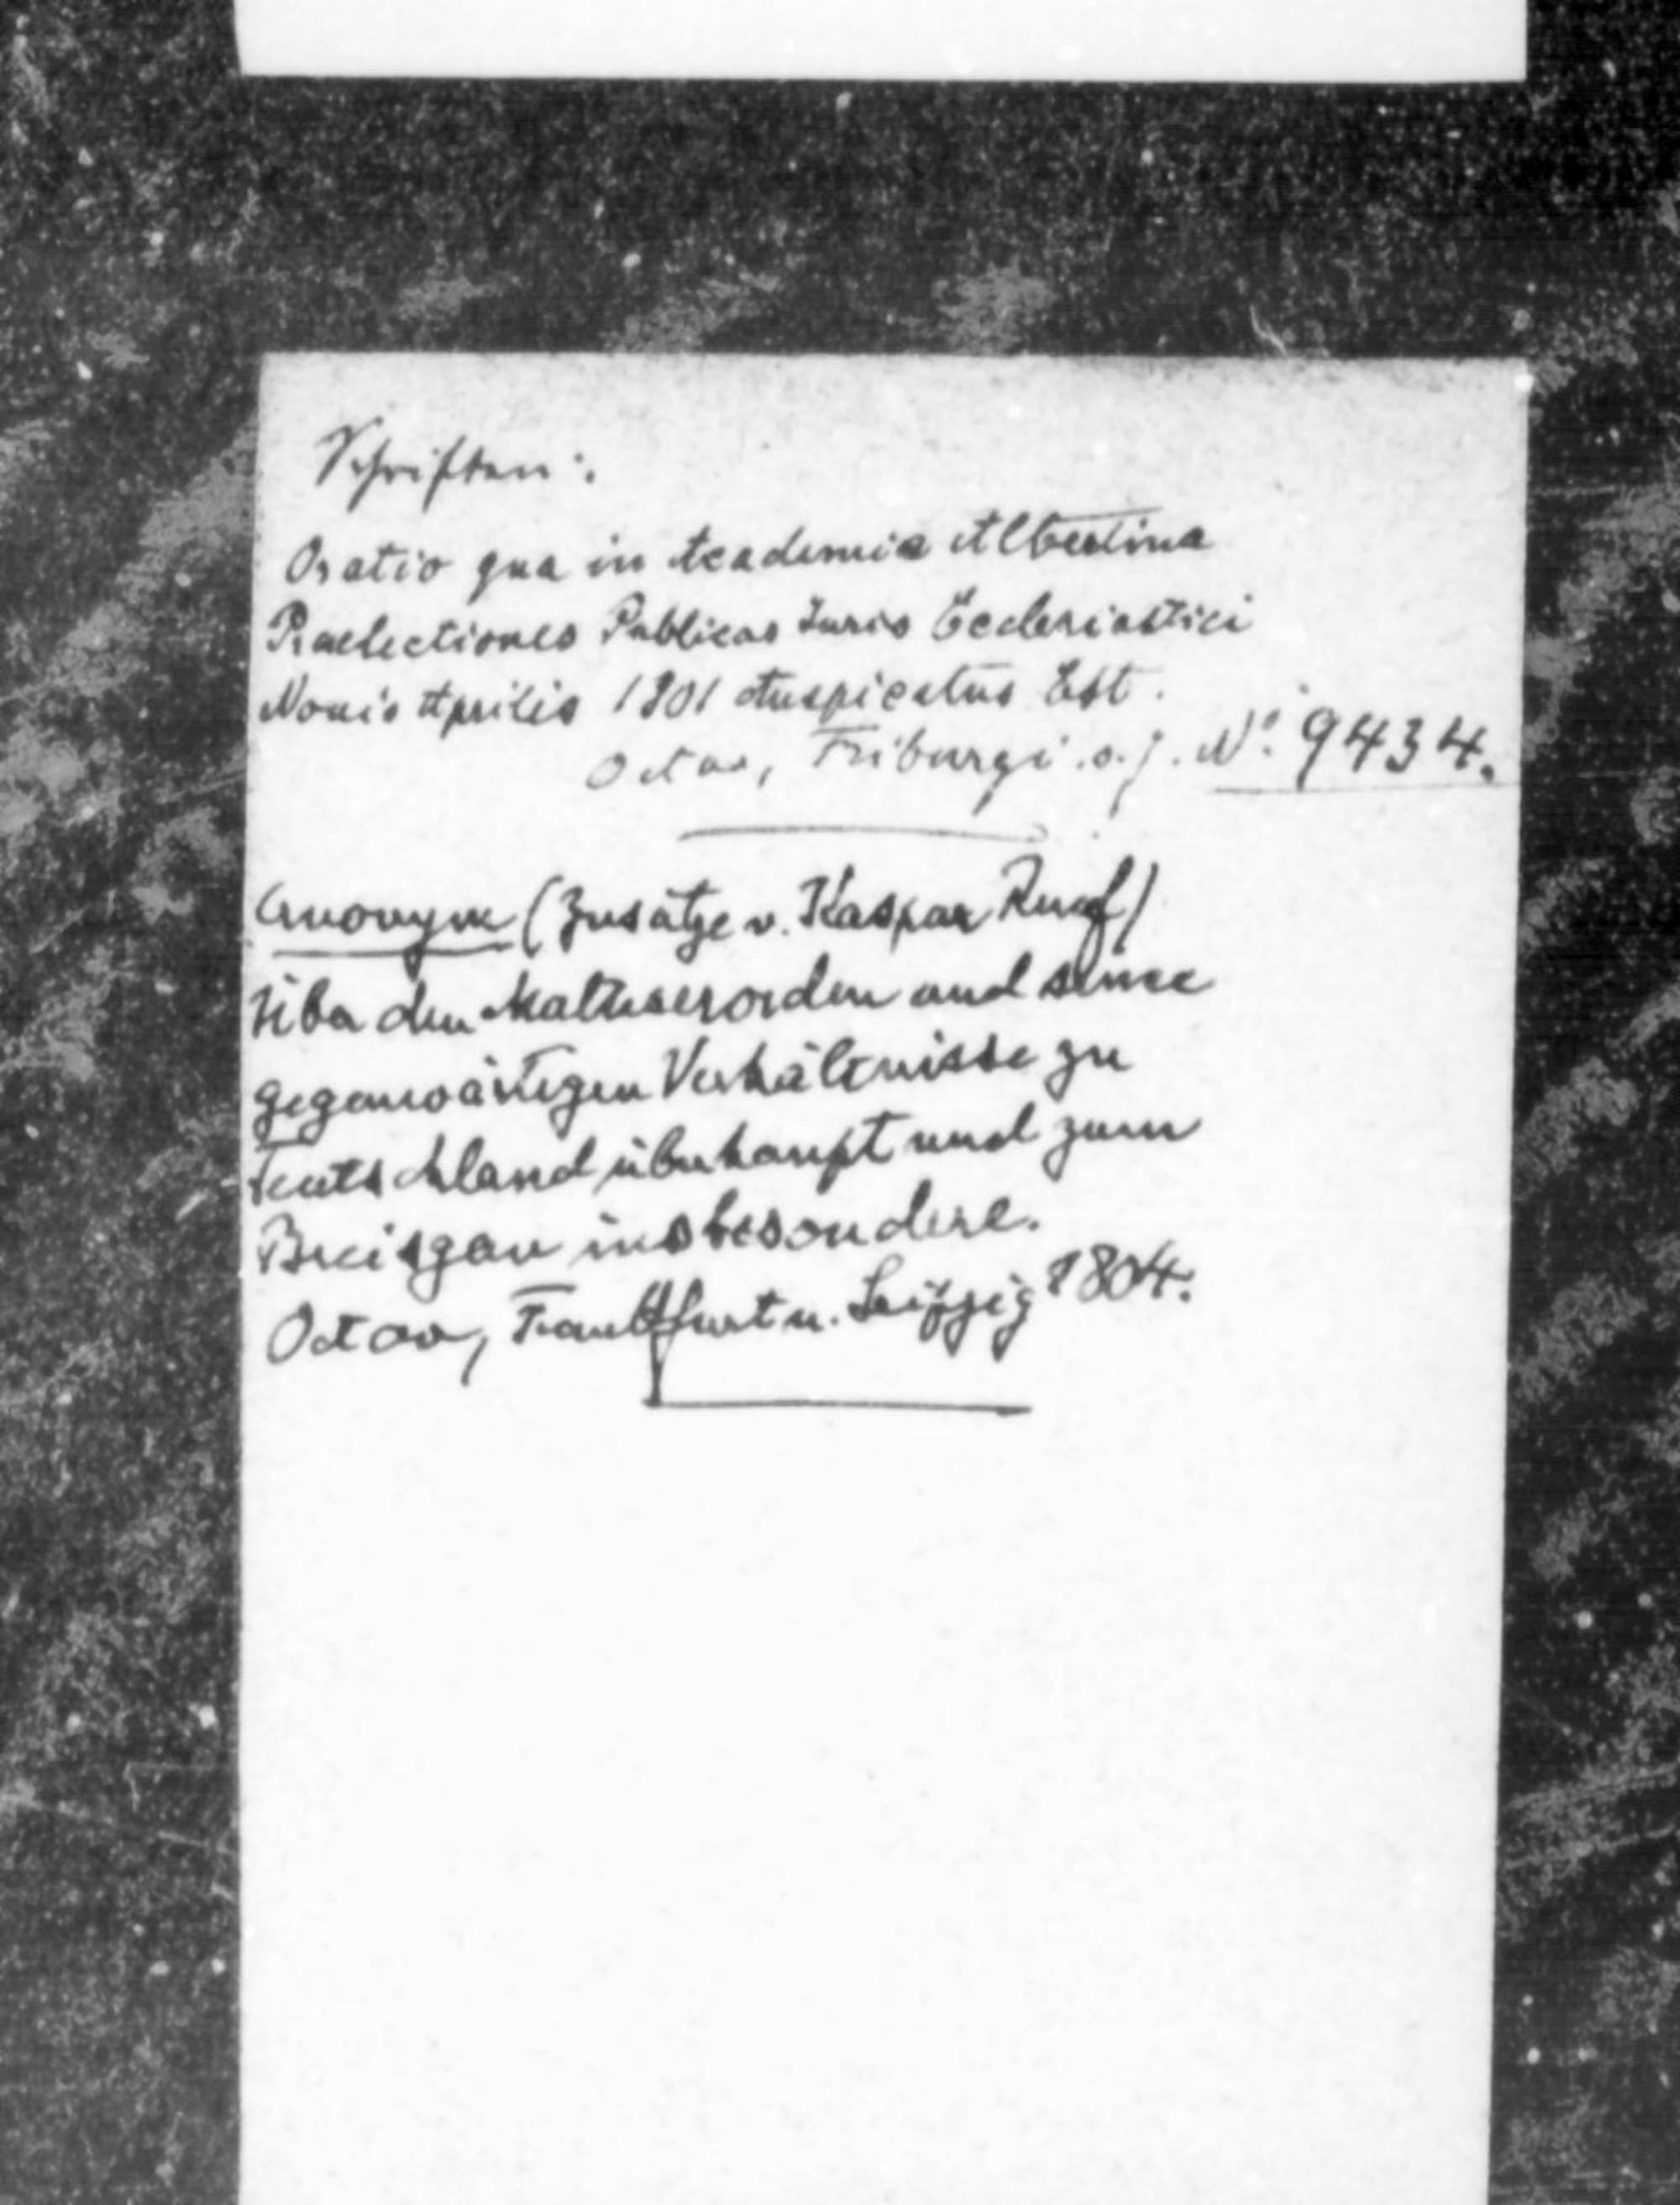 Schriften:
Oratio qua in Academia Albertina
Praelectiones Publicas Iuris Ecclesiastici
Nonis Aprilis 1801 Auspicatus Est.
Octav, Friburgi. s. j. No. 9434.
Anonym (Zusätze v. Kaspar Ruef)
Über den Maltheserorden und seine
gegenwärtigen Verhältnisse zu
Teutschland überhaupt und zum
Breisgau insbesondere.
Octav, Frankfurt u. Leipzig 1804.